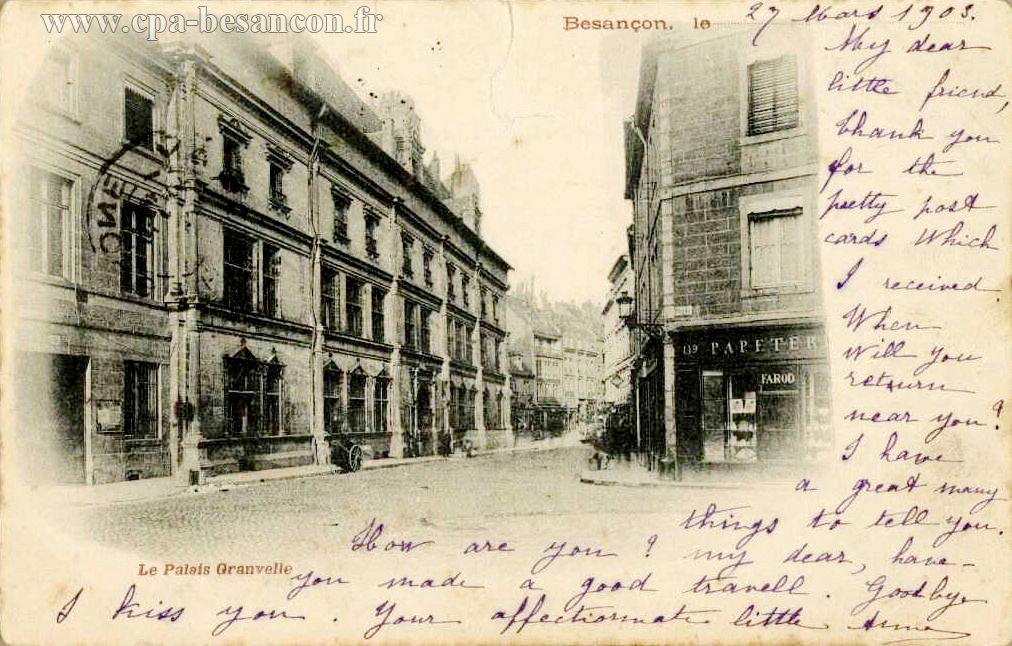 www.cpa-besancon.fr
Besançon, le 27 Mars 1903.
My dear
little friend,
thank you
for the
pretty post
cards which
I received.
When
will you
return
near you?
I have
a great many
things to tell you.
How are you? my dear, have
you made a good travell. Goodbye
I kiss you. Your affectionnate little Anne
139 PAPETER
FAROD
Le Palais Granvelle